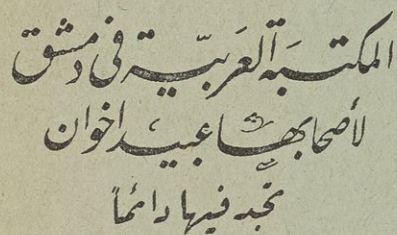 المكتبَة العَربيّة فى دمشق
لأصحابها عبيد اخوان
تجد فيها دائماً